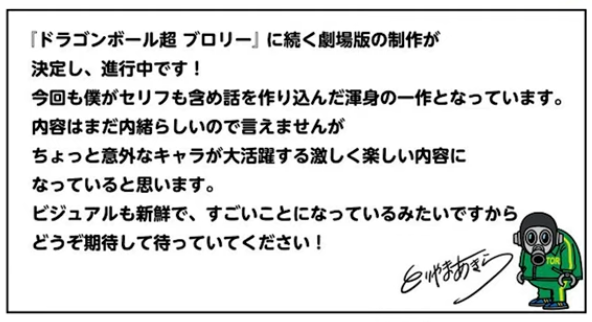 『ドラゴンボール超 ブロリー』に続く劇場版の制作が
決定し、進行中です！
今回も僕がセリフも含め話を作り込んだ渾身の一作となっています。
内容はまだ内緒らしいので言えませんが
ちょっと意外なキャラが大活躍する激しく楽しい内容に
なっていると思います。
ビジュアルも新鮮で、すごいことになっているみたいですから
どうぞ期待して待っていてください！
とりやまあきら
TOR